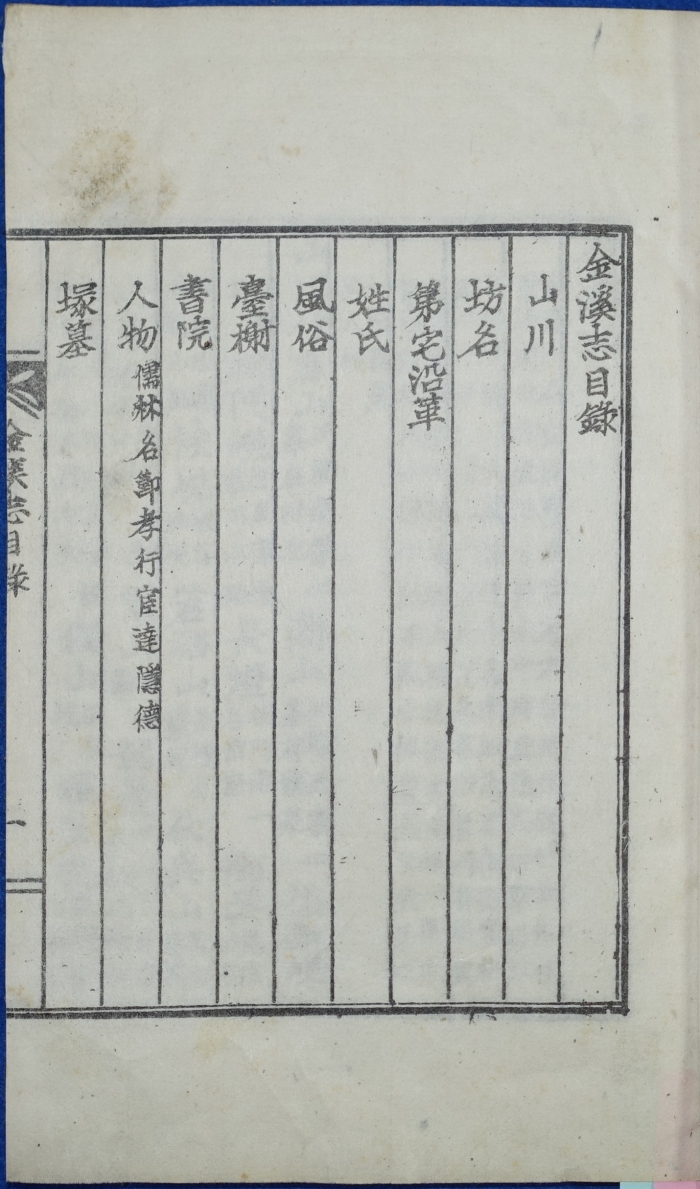 金溪志目錄
山川
坊名
第宅沿革
姓氏
風俗
臺榭
書院
人物 儒林 名節 孝行 宦達 隱德
塚墓
金溪志目錄
一